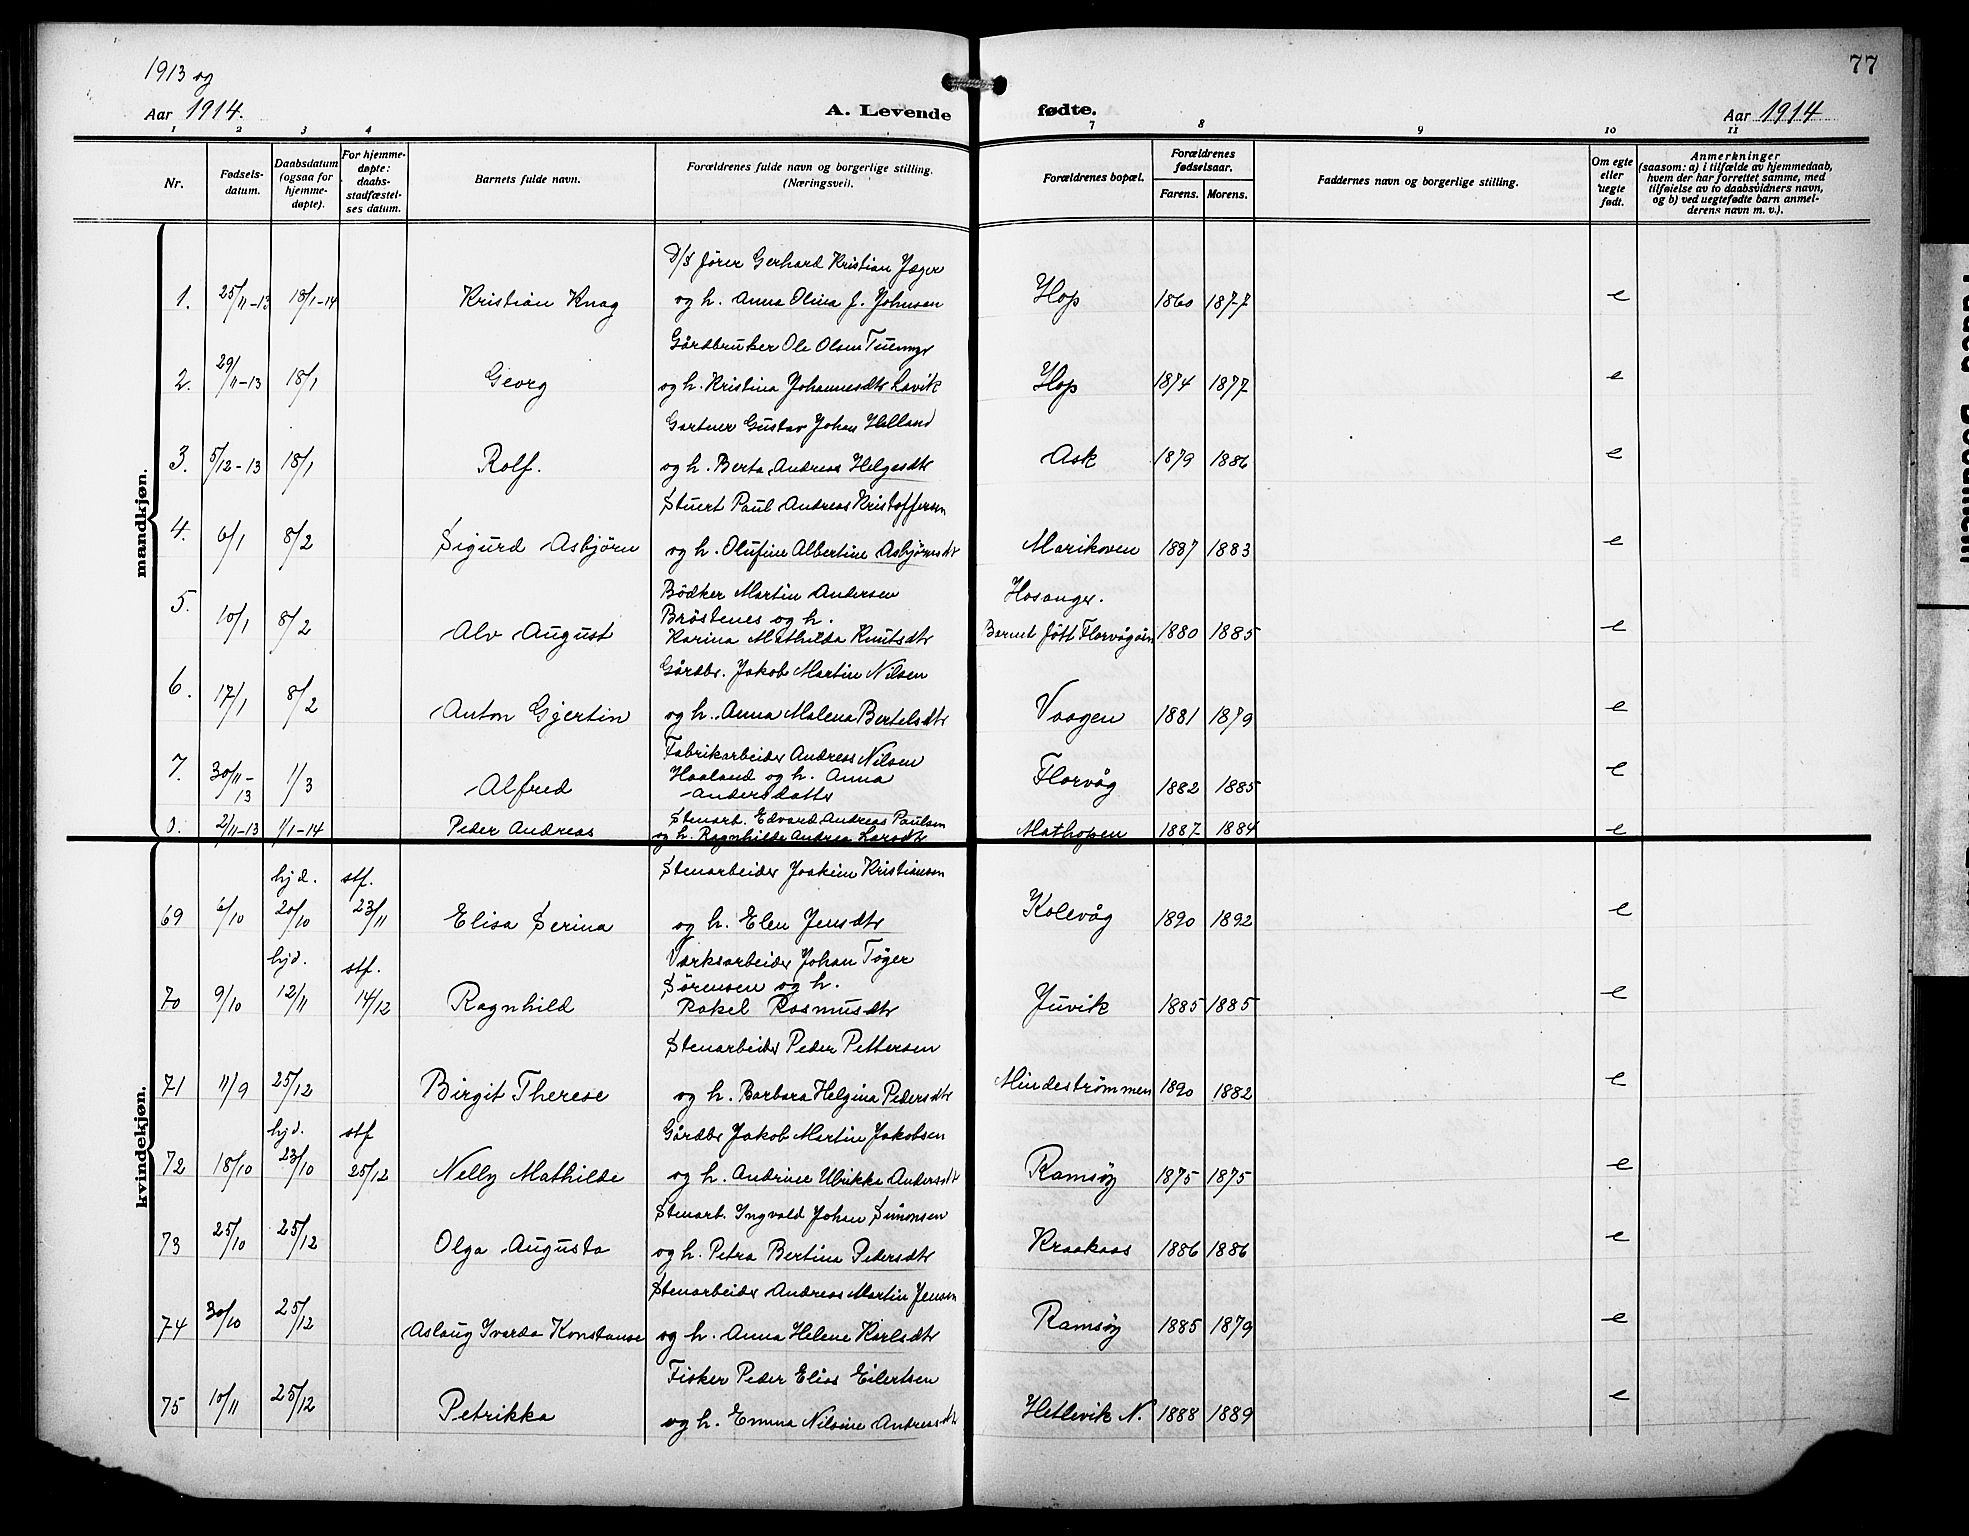 1913 og
Aar 1914.
A. Levende fødte.
Aar 1914
77
1 2 3 4 7 8 9 10 11
Nr.
Fødsels-
datum.
Daabsdatum
(ogsaa for
hjemme-
døpte).
For hjemme-
døpte:
daabs-
stadfæstel-
ses datum.
Barnets fulde navn.
Forældrenes fulde navn og borgerlige stilling.
(Næringsvei).
Forældrenes bopæl.
Forældrenes
fødselsaar.
Farens. Morens.
Faddernes navn og borgerlige stilling.
Om egte
eller
uegte
født.
Anmerkninger
(saasom: a) i tilfælde av hjemmedaab,
hvem der har forrettet samme, med
tilføielse av to daabsvidners navn,
og b) ved uegtefødte barn anmel-
derens navn m. v.).
mandkjøn.
D/S fører Gerhard Kristian Jæger
1. 25/11-13 18/1-14 Kristian Knag og h. Anna Olina J. Johnsen Hop 1860 1877 e
Gårdbruker Ole Olsen
2. 29/11-13 18/1 Georg og h. Kristina Johannesdtr Lavik Hop 1874 1877 e
Gartner Gustav Johan Helland
3. 5/12-13 18/1 Rolf. og h. Berta Andreas Helgesdtr Ask 1879 1886 e
Stuert Paul Andreas Kristoffersen
4. 6/1 8/2 Sigurd Asbjørn og h. Olufine Albertine Asbjørnsdtr Marikoven 1887 1883 e
5. Bödker Martin Andersen Hosanger.
Bröstenes og h.
10/1 8/2 Alv August Karina Mathilda Knutsdtr Barnet født Florvågøen 1880 1885 e
Gårdbr. Jakob Martin Nilsen
6. 17/1 8/2 Anton Gjertin og h. Anna Malena Bertelsdtr Vaagen 1881 1879 e
Fabrikarbeider Andreas Nilsen
7. 30/11-13 1/3 Alfred Haaland og h. Anna Florvåg 1882 1885 e
Andersdatter
Stenarb. Edvard Andreas Paulsen
0. 2/11-13 1/1-14 Peder Andreas og h. Ragnhilde Andrea Larsdtr Mathopen 1887 1884 e
kvindekjøn.
hjd. stf. Stenarbeider Joakim Kristiansen
69 6/10 20/10 23/11 Elisa Serina og h. Elen Jensdtr Kolevåg 1890 1892 e
hjd. stf. Værksarbeider Johan Tøger
Sørensen og h.
70 9/10 12/11 14/12 Ragnhild Rakel Rasmusdtr Juvik 1885 1885 e
Stenarbeider Peder Pettersen
71 11/9 25/12 Birgit Therese og h. Barbara Helgina Pedersdtr Mindestrømmen 1890 1882 e
hjd. stf Gårdbr Jakob Martin Jakobsen
72 18/10 23/10 25/12 Nelly Mathilde og h. Andrine Ulrikka Andersdtr Ramsøy 1875 1875 e
Stenarb. Ingvald Johan Simonsen
73 25/10 25/12 Olga Augusta og h. Petra Bertina Pedersdtr Kraakaas 1886 1886 e
Stenarbeider Andreas Martin Jensen
74 30/10 25/12 Aslaug Ivarda Konstanse og h. Anna Helene Karlsdtr Ramsøy 1885 1879 e
Fisker Peder Elias Eilertsen
75 10/11 25/12 Petrikka og h. Emma Nilsine Andreasdtr Hetlevik N. 1888 1889 e